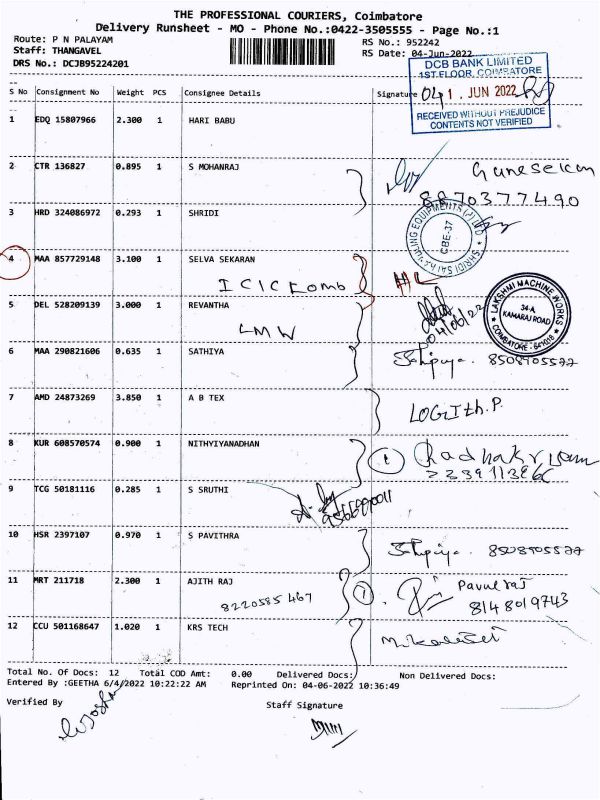 THE PROFESSIONAL COURIERS, Coimbatore
Delivery Runsheet - MO - Phone No.:0422-3505555 - Page No.:1
Route: P N PALAYAM RS No.: 952242
Staff: THANGAVEL RS Date: 04-Jun-2022
DRS No.: DCJB95224201
DCB BANK LIMITED
1ST FLOOR, COIMBATORE
04 1. JUN 2022
RECEIVED WITHOUT PREJUDICE
CONTENTS NOT VERIFIED
S No Consignment No Weight PCS Consignee Details Signature
1 EDQ 15807966 2.300 1 HARI BABU
2 CTR 136827 0.895 1 S MOHANRAJ
8870377490
3 HRD 324086972 0.293 1 SHRIDI
CBE-37
4 MAA 857729148 3.100 1 SELVA SEKARAN
5 DEL 528209139 3.000 1 REVANTHA
LMW
04/06/22
LAKSHMI MACHINE WORKS
34-A
KAMARAJ ROAD
COIMBATORE - 641018
6 MAA 290821606 0.635 1 SATHIYA
8508705577
7 AMD 24873269 3.850 1 A B TEX
LOGIth.P.
8 KUR 608570574 0.900 1 NITHYIYANADHAN
9 TCG 50181116 0.285 1 S SRUTHI
10 HSR 2397107 0.970 1 S PAVITHRA
8508705577
11 MRT 211718 2.300 1 AJITH RAJ
8220585467
8148019743
12 CCU 501168647 1.020 1 KRS TECH
Total No. Of Docs: 12 Total COD Amt: 0.00 Delivered Docs: Non Delivered Docs:
Entered By :GEETHA 6/4/2022 10:22:22 AM Reprinted On: 04-06-2022 10:36:49
Verified By Staff Signature